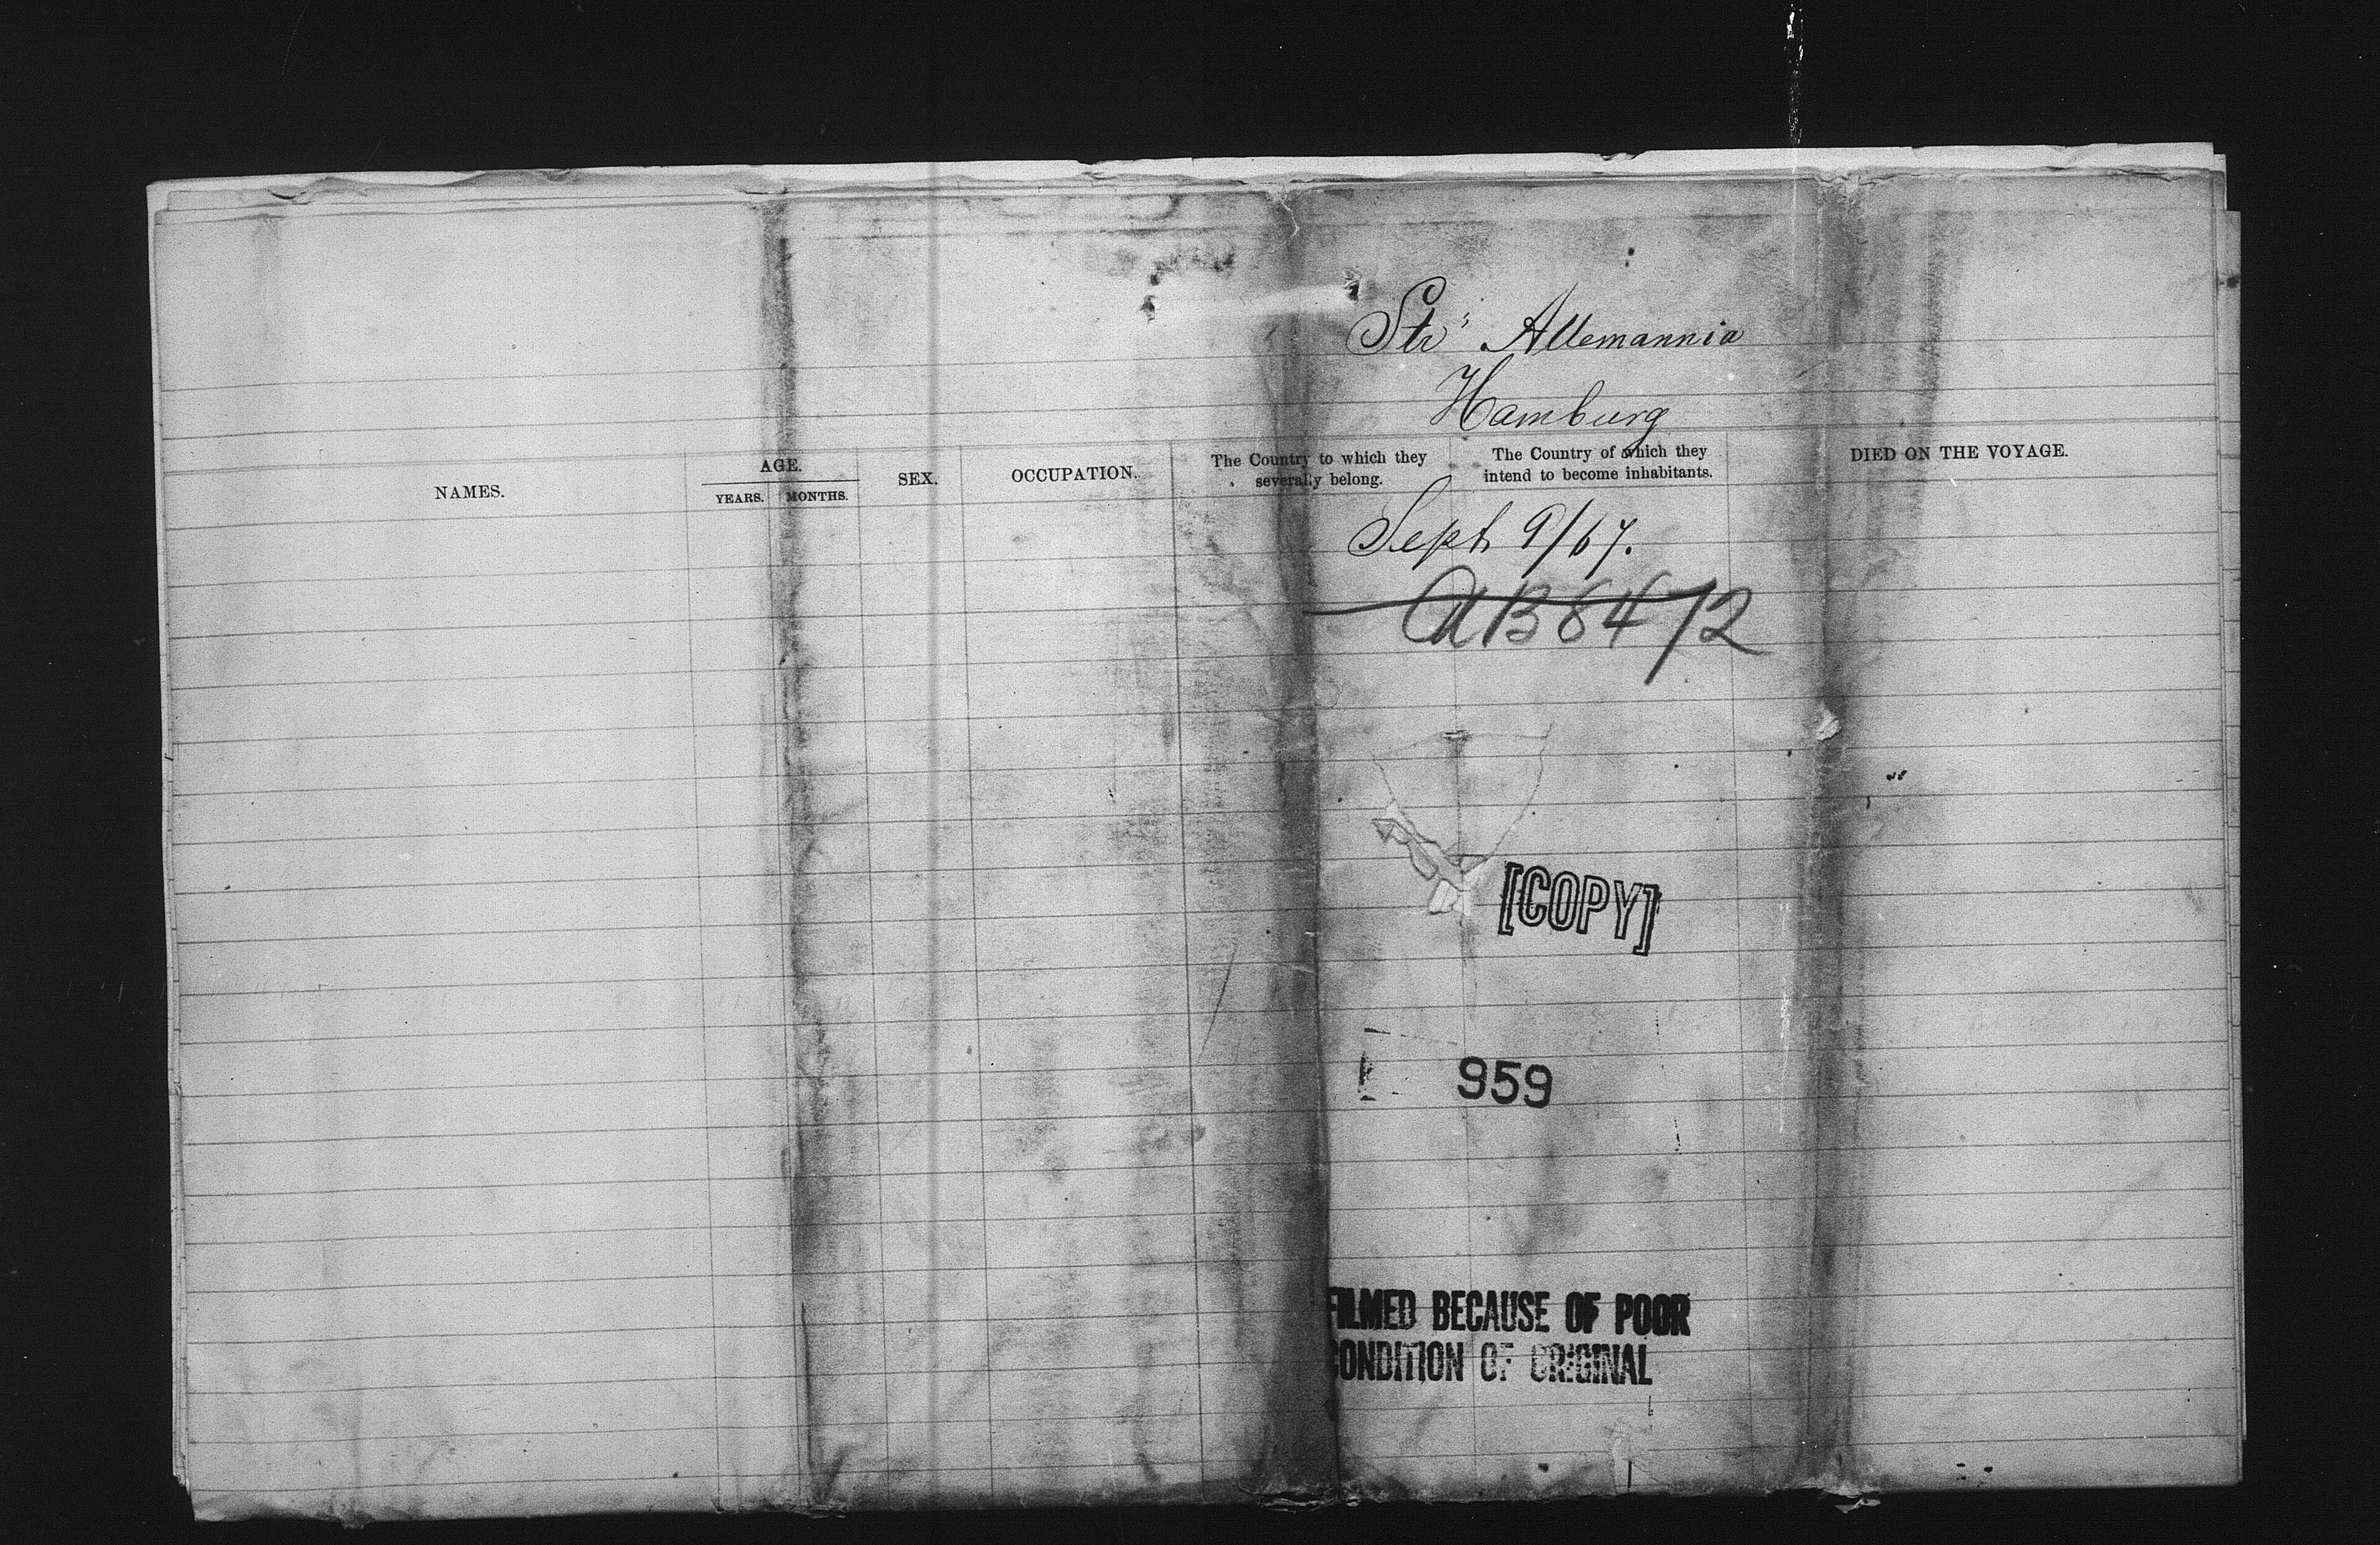 Str Allemannia
Hamburg
NAMES.
AGE.
YEARS. MONTHS.
SEX.
OCCUPATION.
The Country to which they
severally belong.
The Country of which they
intend to become inhabitants.
DIED ON THE VOYAGE.
Sept 9/67.
AB8472
[COPY]
959
FILMED BECAUSE OF POOR
CONDITION OF ORIGINAL